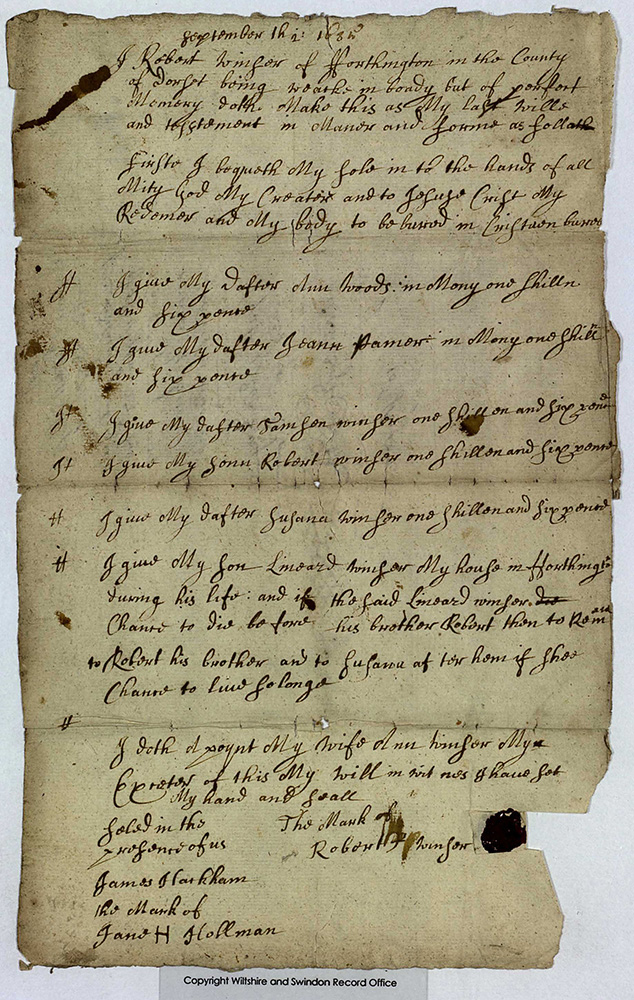 September th 2: 1635
I Robert winser of fforthington in the County
of dorset being weake in boady but of perfect
Memery doth Make this as My last wille
and testement in Maner and forme as follath
Firste I boqueth My sole in to the hands of all
Mity god My Creater and to Jesuse Crist My
Redemer and My body to be bured in Cristuen bures
It I giue My dafter Ann Woods: in Mony one shilln
and six pence
It I giue My dafter Jeann Pamer: in Mony one shill
and six pence
It I giue My dafter Tamsen winser one skillen and six penc
It I giue My sonn Robert winser one skillen and six pence
It I giue My dafter susana winser one skillen and six pence
It I giue My son Lineard winser My house in fforthingt
during his life: and if the said Lineard winser die
Chance to die be fore his brother Robert then to Rem
to Robert his brother and to susana af ter hem if shee
Chance to liue so longe
It
I doth A poynt My wife Ann winser My
Exceter of this My will in wit nes I haue set
My hand and seall
seled in the The Mark of
presence of us Robert winser
James Hackham
the Mark of
Jane H Hollman
Copyright Wiltshire and Swindon Record Office